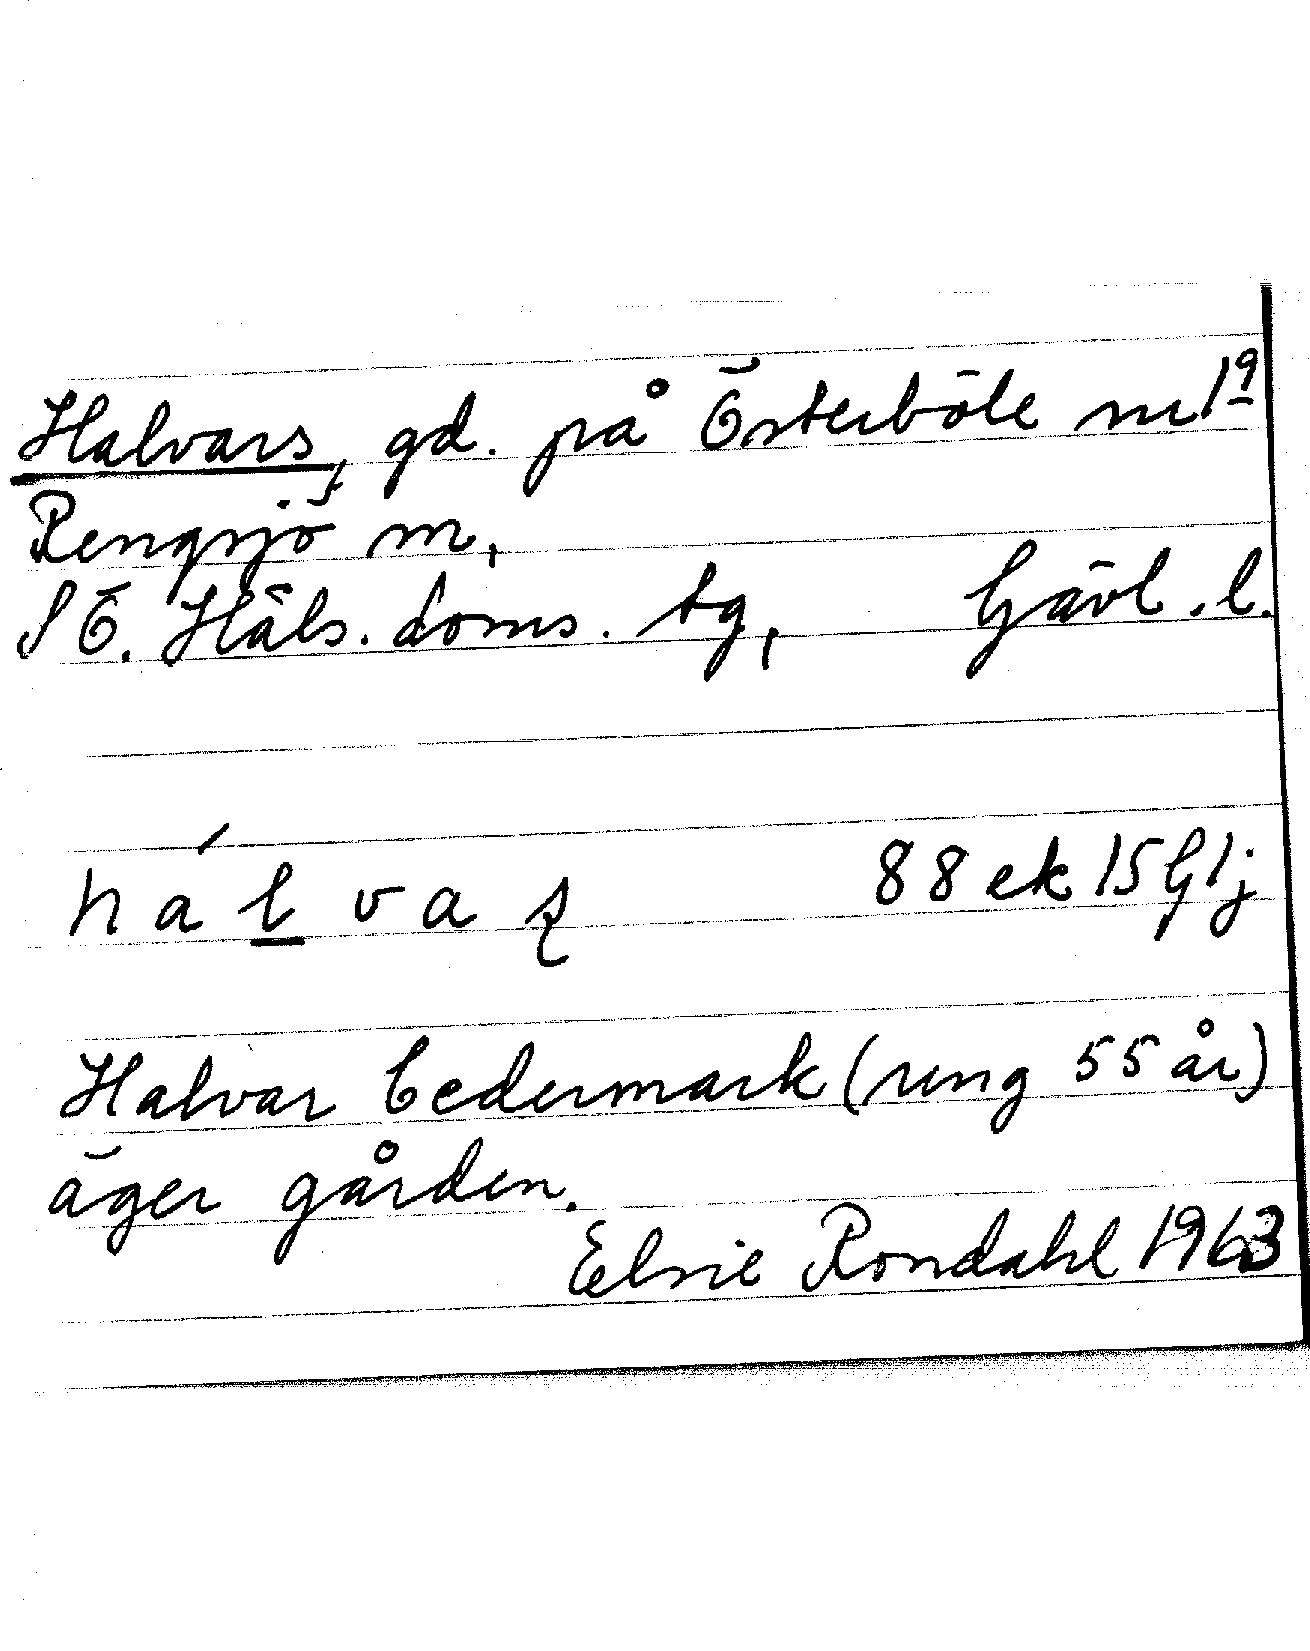 Halvars, gd. på Österböle nr 1⁹
Rengsjö sn,
SÖ. Häls. doms. tg, Gävl. l.
há l̲ v a ʂ 88 ek 15 G 1j
Halvar Cedermark (nng 55 år)
äger gården.
Elsie Rondahl 1963